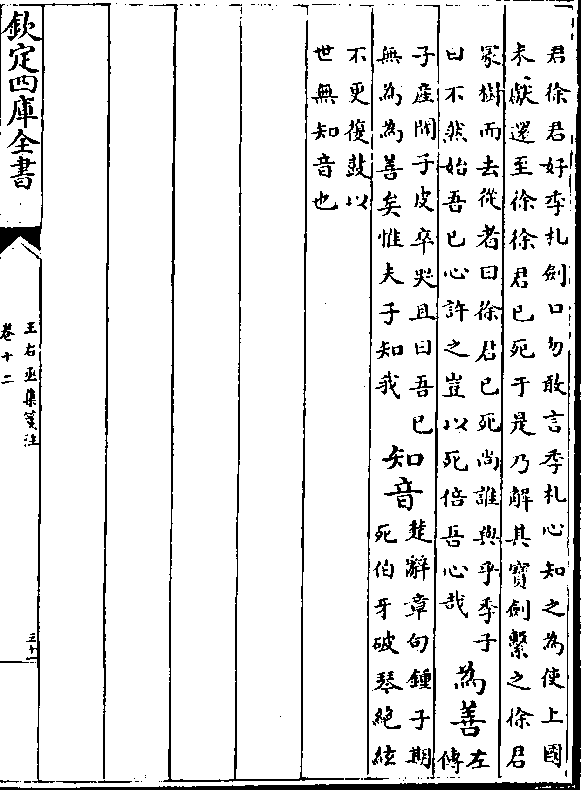 君徐君好季札劍口勿敢言季札心知之為使上國
未獻還至徐徐君已死于是乃解其寳劍繫之徐君
冢樹而去從者曰徐君已死尚誰與乎季子
曰不然始吾已心許之豈以死倍吾心哉
為善
左
傳
子産聞子皮卒哭且曰吾已
無為為善矣惟夫子知我
知音
楚辭章句鍾子期
死伯牙破琴絶絃
不更復鼓以
世無知音也
欽定四庫全書
王右丞集箋注
卷十二
三十一